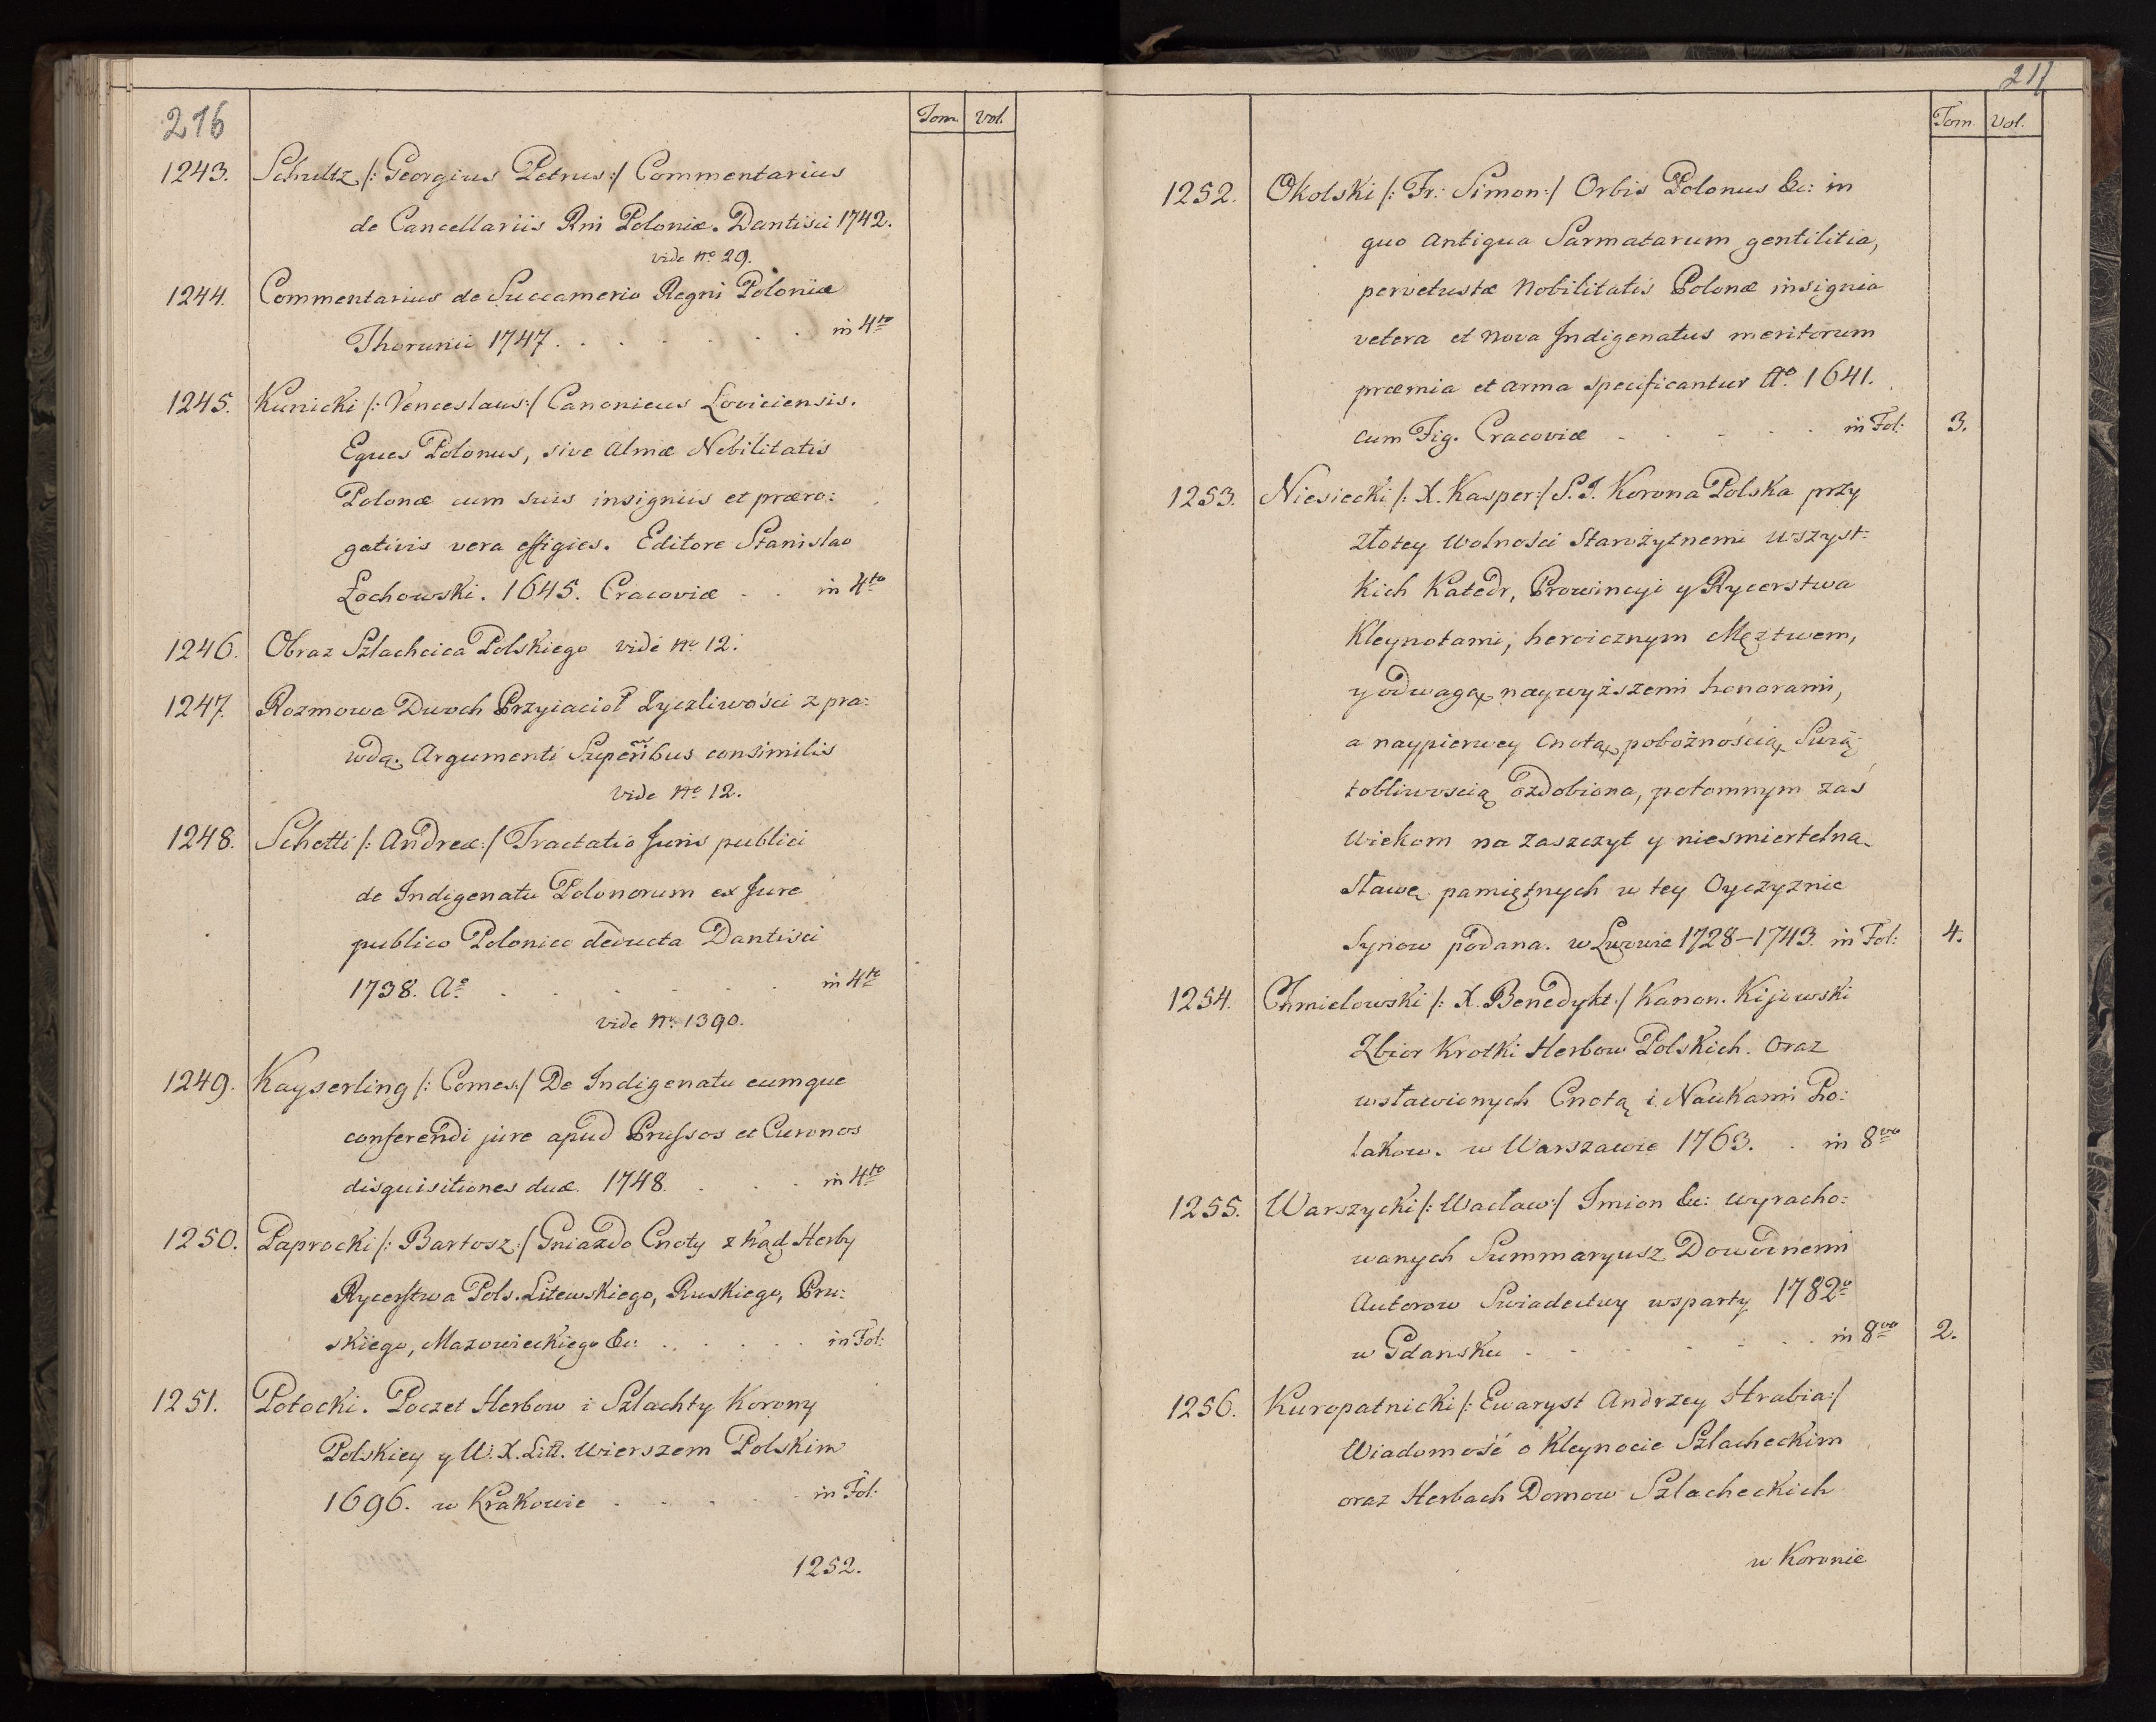 216
Tom. Vol.
1243. Schultz /: Georgius Petrus :/ Commentarius
de Cancellariis Rni Poloniæ. Dantisci 1742.
vide No 29.
1244. Commentarius de Succamerio Regni Poloniæ
Thorunii 1747. . . . . . . in 4to
1245. Kunicki /: Venceslaus :/ Canonicus Loviciensis.
Eques Polonus, sive almæ Nobilitatis
Polonæ cum suis insigniis et præro:
gativis vera effigies. Editore Stanislao
Łochowski. 1645. Cracoviæ . . in 4to
1246. Obraz Szlachcica Polskiego vide No 12.
1247. Rozmowa Dwoch Przyiacioł Zyczliwości z pra:
wdą. Argumenti Superĩbus consimilis
vide No 12.
1248. Schotti /: Andreæ :/ Tractatio Juris publici
de Indigenatu Polonorum ex Jure
publico Polonico deducta Dantisci
1738. Ao . . . . . . in 4to
vide No 1390.
1249. Kayserling /: Comes :/ De Indigenatu eumque
conferendi jure apud Prussos et Curonos
disquisitiones duæ. 1748. . . . in 4to
1250. Paprocki /: Bartosz :/ Gniazdo Cnoty z kąd Herby
Rycerstwa Pols. Litewskiego, Ruskiego, Pru:
skiego, Mazowieckiego &c: . . . . . in Fol:
1251. Potocki. Poczet Herbow i Szlachty Korony
Polskiey y W. X. Litt. wierszem Polskim
1696. w Krakowie . . . . . in Fol:
1252.
217
Tom. Vol.
1252. Okolski /: Fr: Simon :/ Orbis Polonus &c: in
quo antiqua Sarmatarum gentilitia,
pervetustæ Nobilitatis Polonæ insignia
vetera et nova Indigenatus meritorum
præmia et arma specificantur Ao. 1641.
cum Fig. Cracoviæ . . . . . in Fol: 3.
1253. Niesiecki /: X. Kasper :/ S. J. Korona Polska przy
złotey wolności Starożytnemi wszyst:
kich Katedr, Prowincyi y Rycerstwa
Kleynotami, heroicznym Męztwem,
y odwagą, naywyższemi honorami,
a naypierwey Cnotą, pobożnością, Swią:
tobliwością ozdobiona, potomnym zaś
wiekom na zaszczyt y niesmiertelną
sławę pamiętnych w tey Oyczyznie
Synow podana. w Lwowie 1728-1743. in Fol: 4.
1254. Chmielowski /: X. Benedykt :/ Kanon. Kijowski
Zbior Krotki Herbow Polskich. oraz
wsławionych Cnotą i Naukami Po:
lakow. w Warszawie 1763. . in 8vo
1255. Warszycki /: Wacław :/ Imion &c: wyracho:
wanych Summaryusz Dowodnemi
Autorow Swiadectwy wsparty 1782o
w Gdansku . . . . . . in 8vo 2.
1256. Kuropatnicki /: Ewaryst Andrzey Hrabia :/
Wiadomość o Kleynocie Szlacheckim
oraz Herbach Domow Szlacheckich
w Koronie